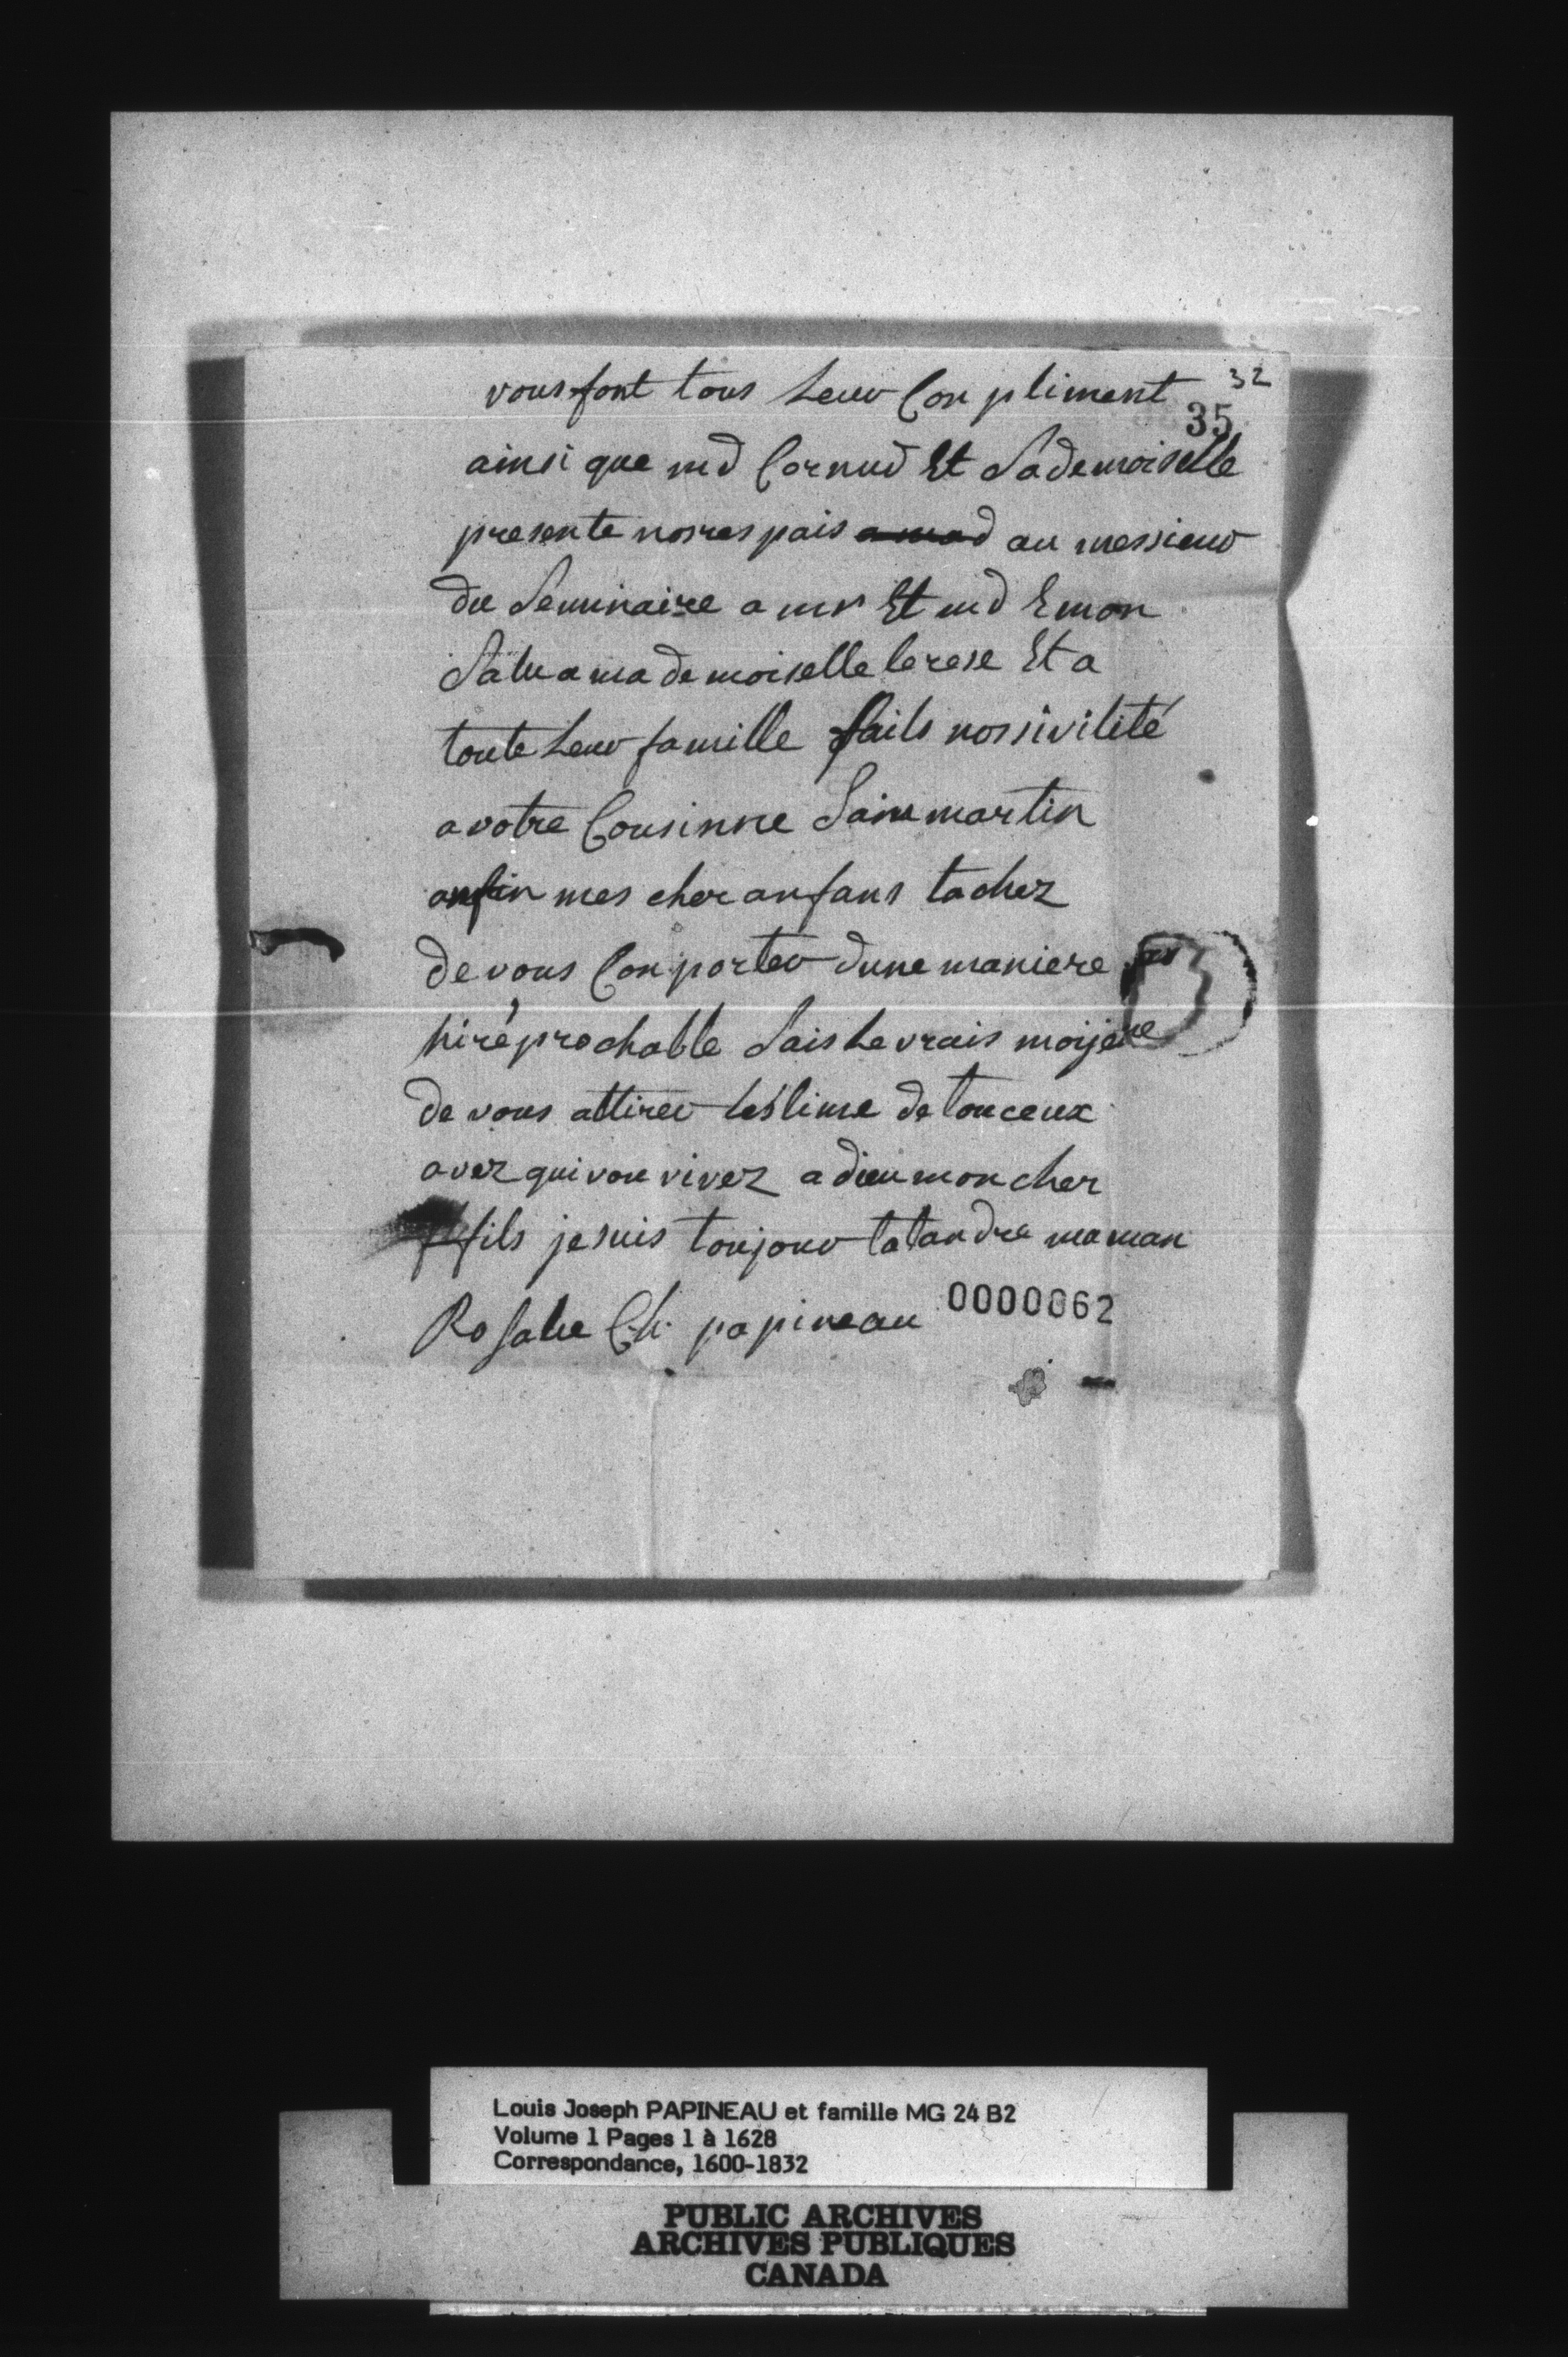 32
vous font tous Leur Conpliment
35
ainsi que md Cornud Et Sademoiselle
presente nos respais a mad au messieur
du Seminaire a mr Et md Emon
Salu a mademoiselle lerese Et a
toute Leur famille fails nos sivilité
a votre Cousinne Sainmartin
anfin mes cher anfans tachez
de vous Conporter dune maniere
hiréprochable Sais Le vrais moijene
de vous attirer Lestime de tou ceux
avez qui vou vivez a dieu mon cher
fils je suis toujour ta tandre maman
Rosalie C.h. papineau
0000062
Louis Joseph PAPINEAU et famille MG 24 B2
Volume 1 Pages 1 à 1628
Correspondance, 1600-1832
PUBLIC ARCHIVES
ARCHIVES PUBLIQUES
CANADA